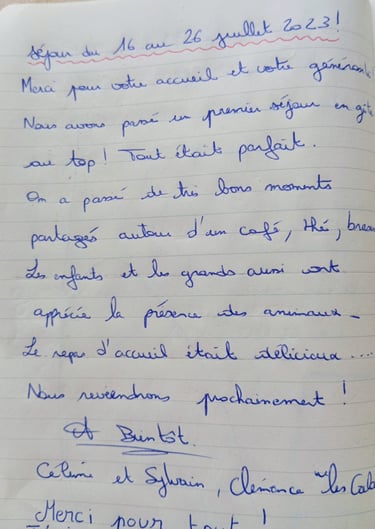 Séjour du 16 au 26 juillet 2023!
Merci pour votre accueil et votre générosit
Nous avons passé un premier séjour en gît
au top! Tout était parfait.
On a passé de très bons moments
partagés autour d'un café, thé,
Les enfants et les grands aussi ont
apprécié la présence des animaux.
Le repas d'accueil était délicieux....
Nous reviendrons prochainement!
A Bientôt.
Céline et Sylvain, Clémence les
Merci pour tout!